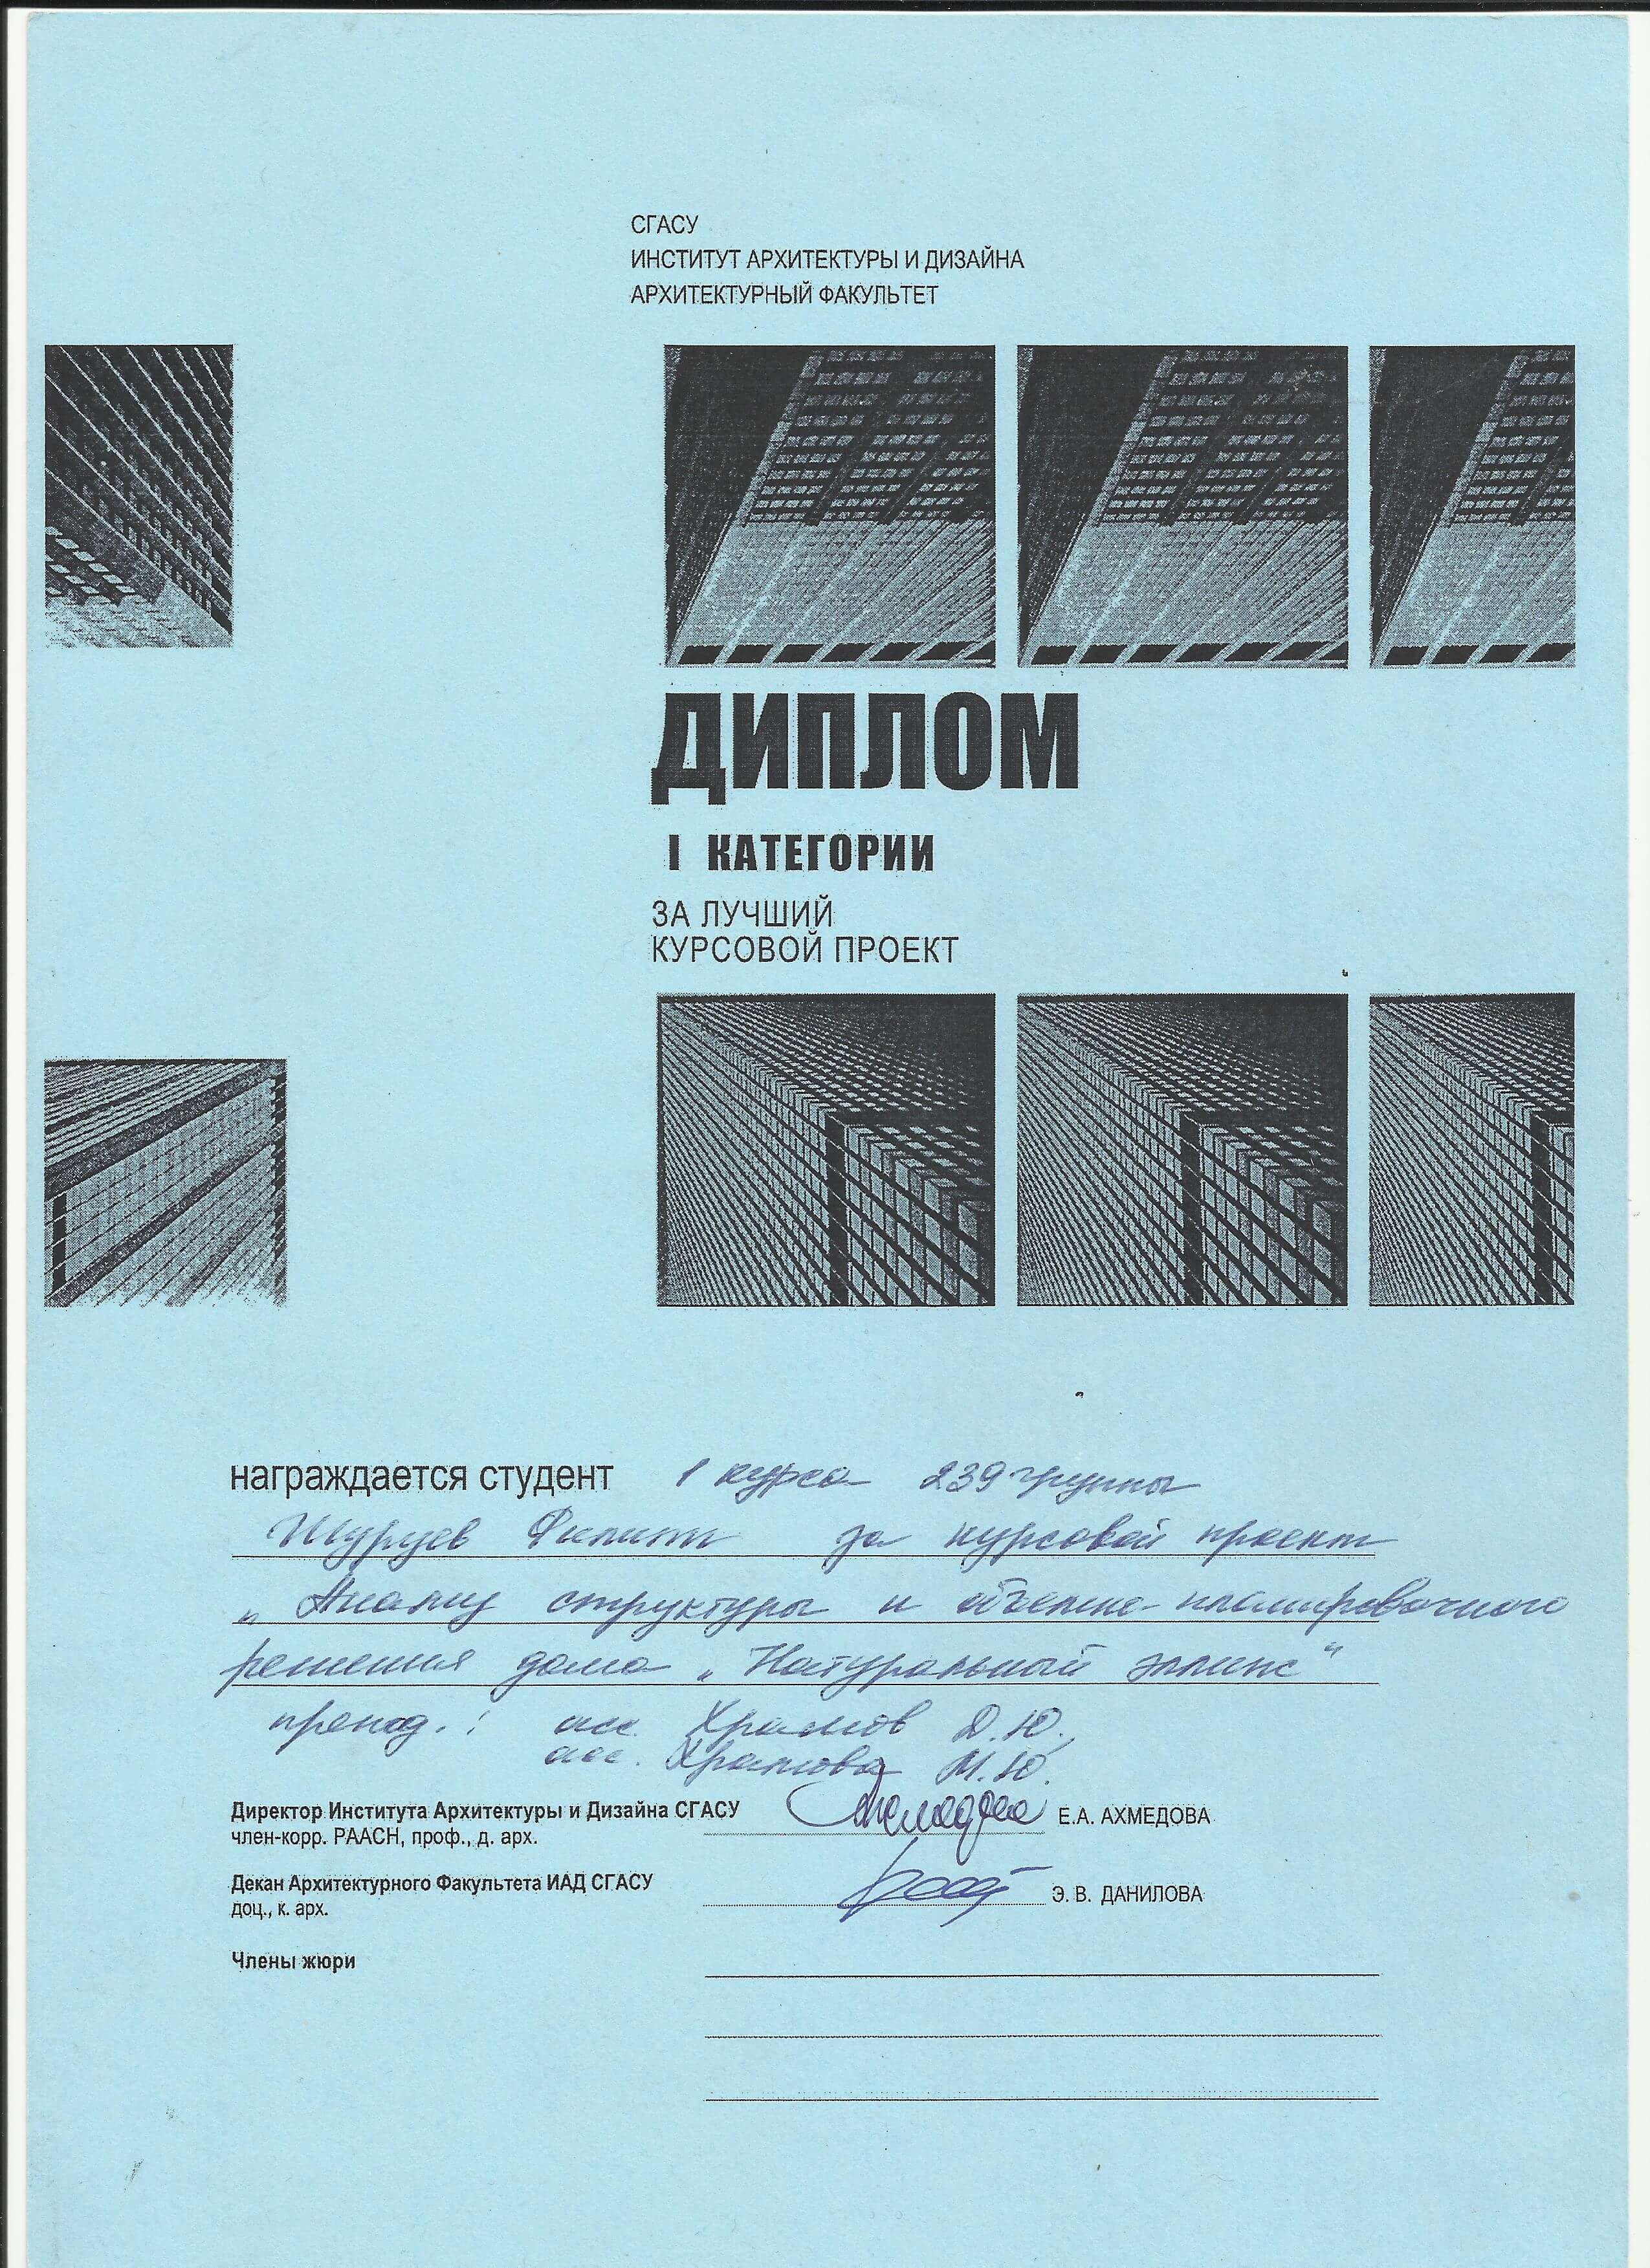 СГАСУ
ИНСТИТУТ АРХИТЕКТУРЫ И ДИЗАЙНА
АРХИТЕКТУРНЫЙ ФАКУЛЬТЕТ
ДИПЛОМ
I КАТЕГОРИИ
ЗА ЛУЧШИЙ
КУРСОВОЙ ПРОЕКТ
награждается студент 1 курса 239 группы
Филипп за курсовой проект
„Анализ структуры и объемно-планировочного
решения дома „Натуральный эллипс“
препод.: асс. Храмов Д.Ю.,
асс. Храмова М.Ю.
Директор Института Архитектуры и Дизайна СГАСУ Е.А. АХМЕДОВА
член-корр. РААСН, проф., д. арх.
Декан Архитектурного Факультета ИАД СГАСУ Э. В. ДАНИЛОВА
доц., к. арх.
Члены жюри